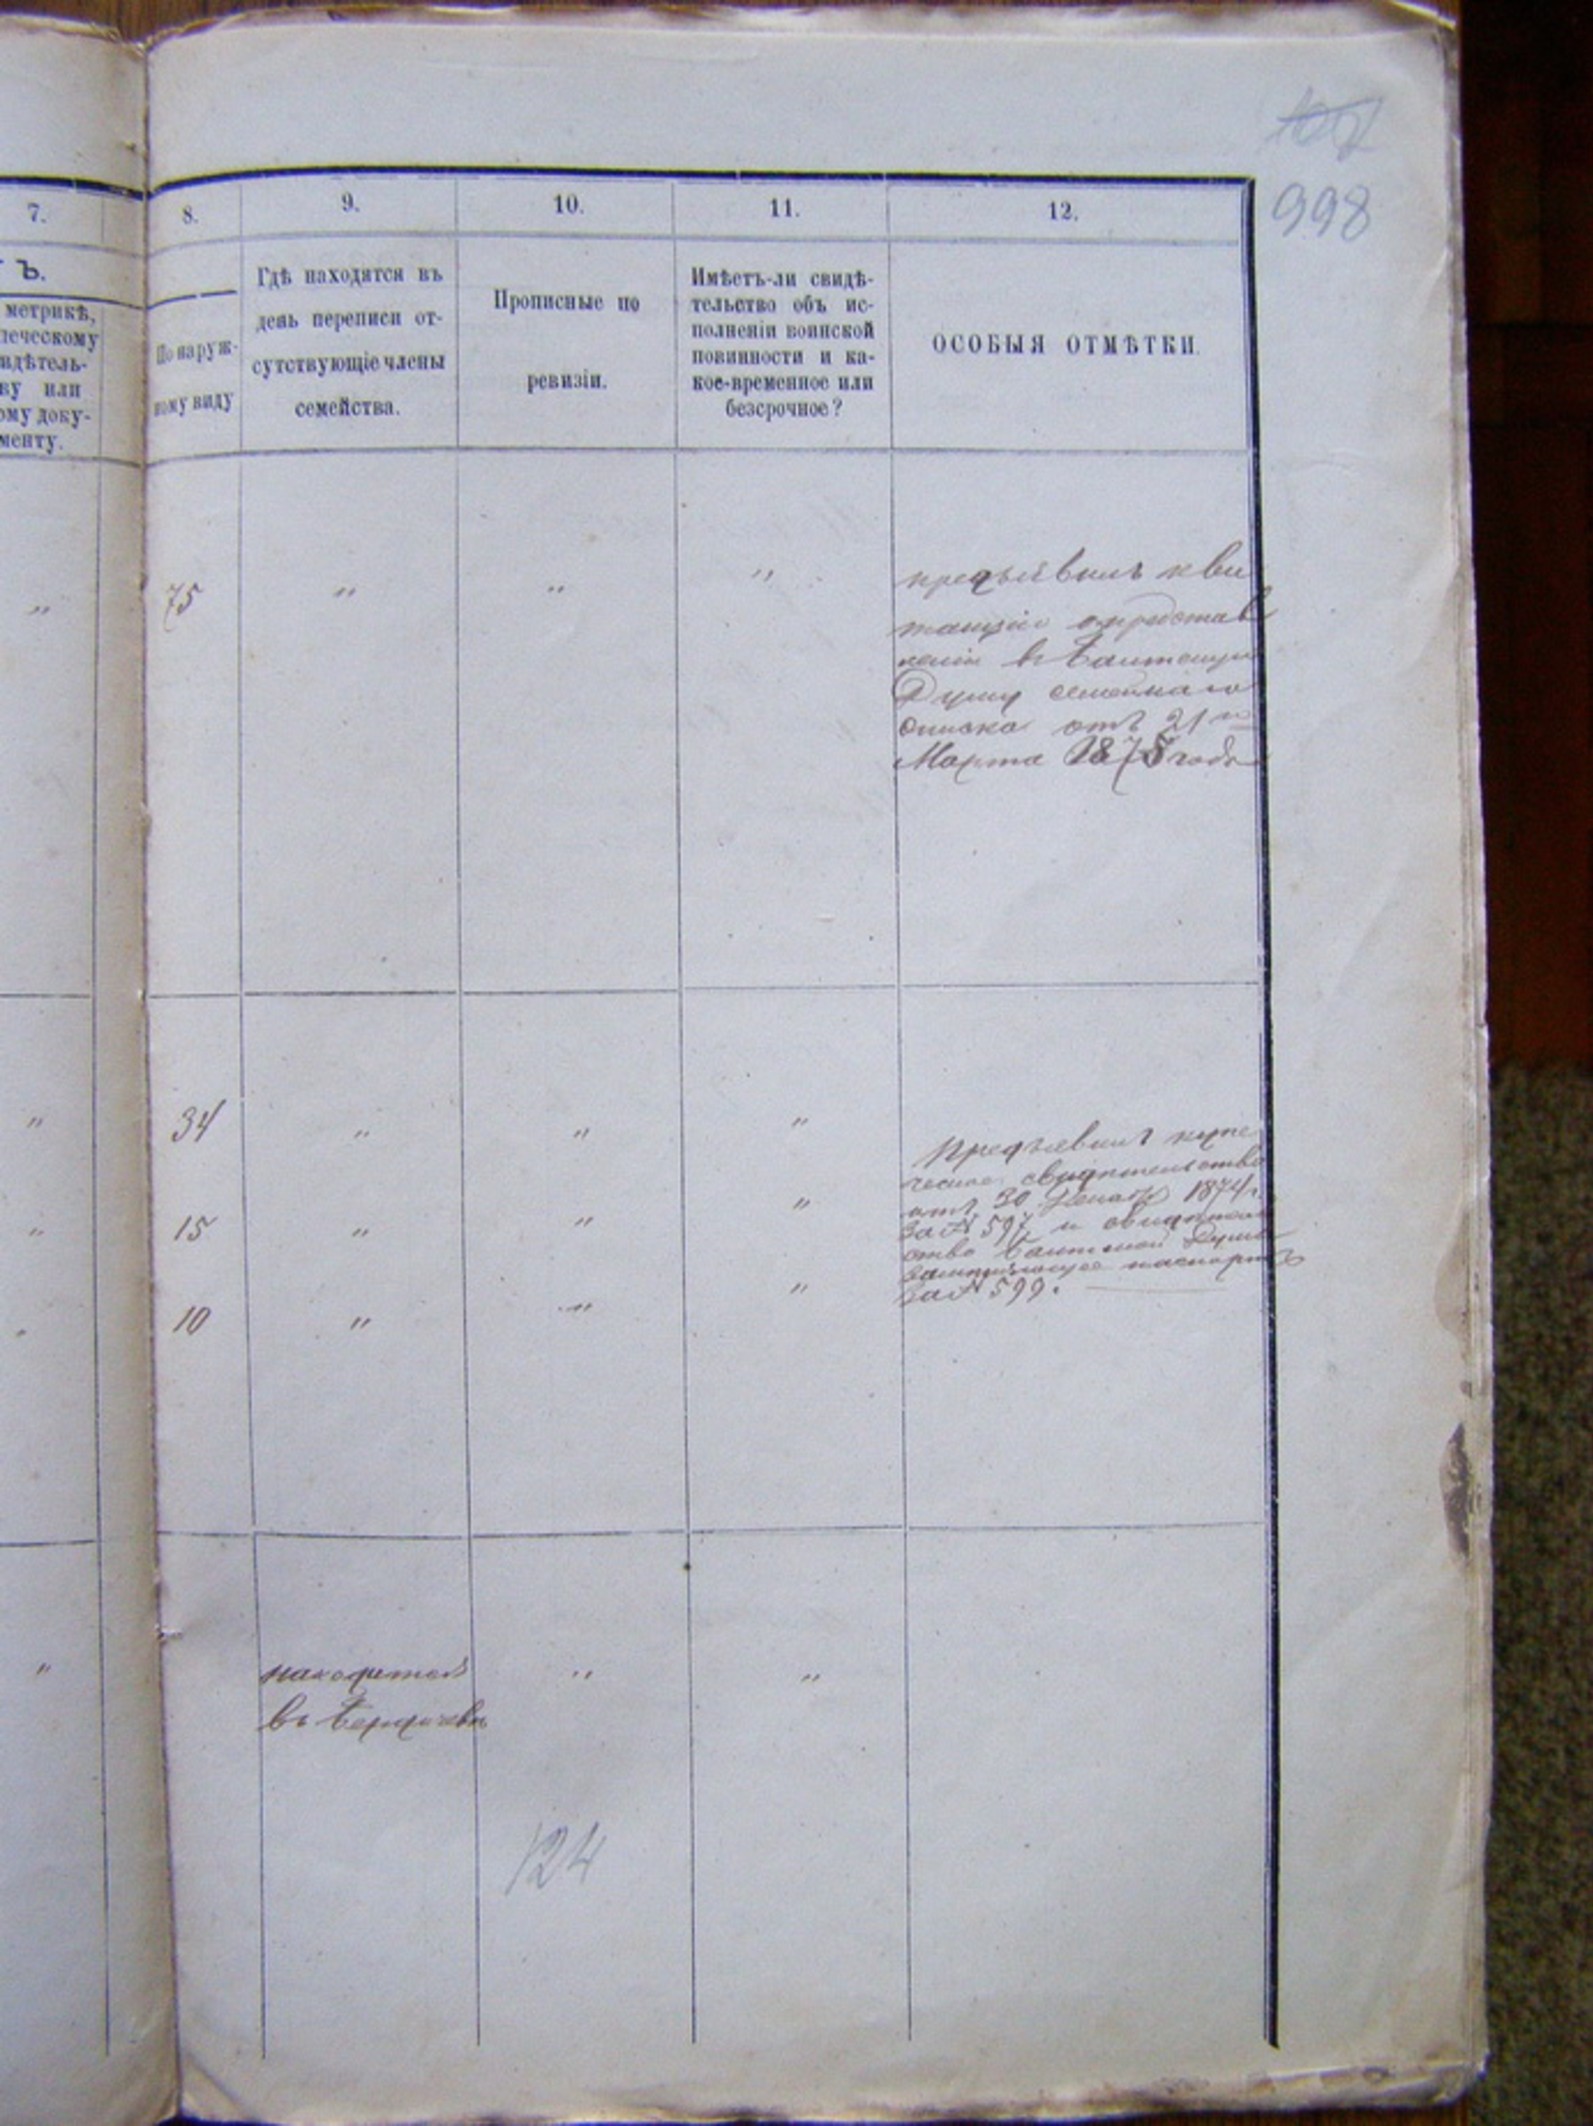 998
7.
8.
9.
10.
11.
12.
Ъ.
метрикѣ,
печескому
идѣтель-
ву или
ому доку-
менту.
По наруж-
ному виду
Гдѣ находятся въ
день переписи от-
сутствующіе члены
семейства.
Прописные по
ревизіи.
Имѣетъ-ли свидѣ-
тельство объ ис-
полненіи воинской
повинности и ка-
кое-временное или
безсрочное?
ОСОБЫЯ ОТМѢТКИ.
" 75 " " "
предъявилъ кви
танцію о представ
леніи въ Балтскую
Думу семейнаго
списка отъ 21 го
Марта 1875 года
" 34 " " "
" 15 " " "
" 10 " " "
Предъявилъ купе
ческое свидѣтельство
отъ 30 Декабр 1874 г.
за № 597 и свидѣтель
ство Балтской Думы
паспортъ
за № 599.
" находится " "
въ Бердичевѣ
124